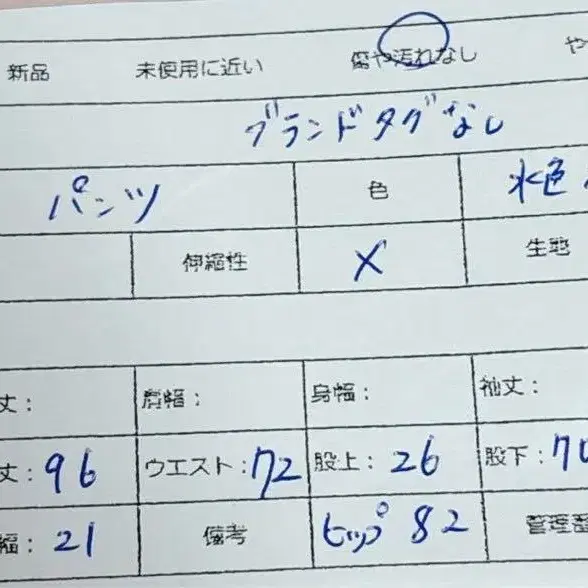 新品 未使用に近い 傷や汚れなし や
ブランドタグなし
パンツ 色 水色
伸縮性 × 生地
丈： 肩幅： 身幅： 袖丈：
丈：96 ウエスト：72 股上：26 股下：70
幅：21 備考 ヒップ 82 管理番